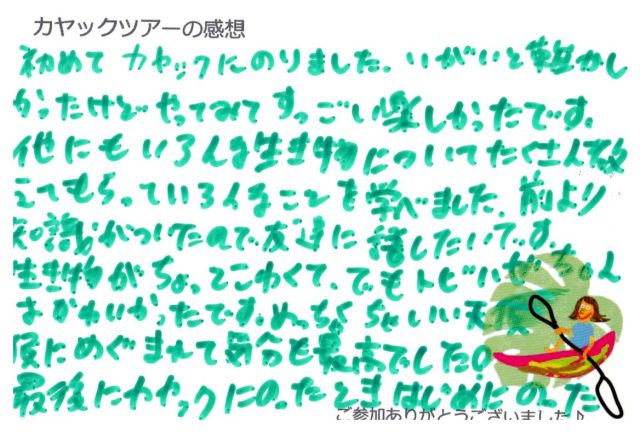 カヤックツアーの感想
初めてカヤックにのりました。いがいと難かし
かったけどやってみてすっごい楽しかったです。
他にもいろんな生き物についてたくさん教
えてもらっていろんなことを学べました。前より
知識がついたので友達に話したいです。
生き物がちょっとこわくて、でもトビハゼちゃん
かわいかったです。めっちくちゃいい天
度にめぐまれて気分も最高でした
最後にカヤックにのったときはじめにのった
ご参加ありがとうございました♪